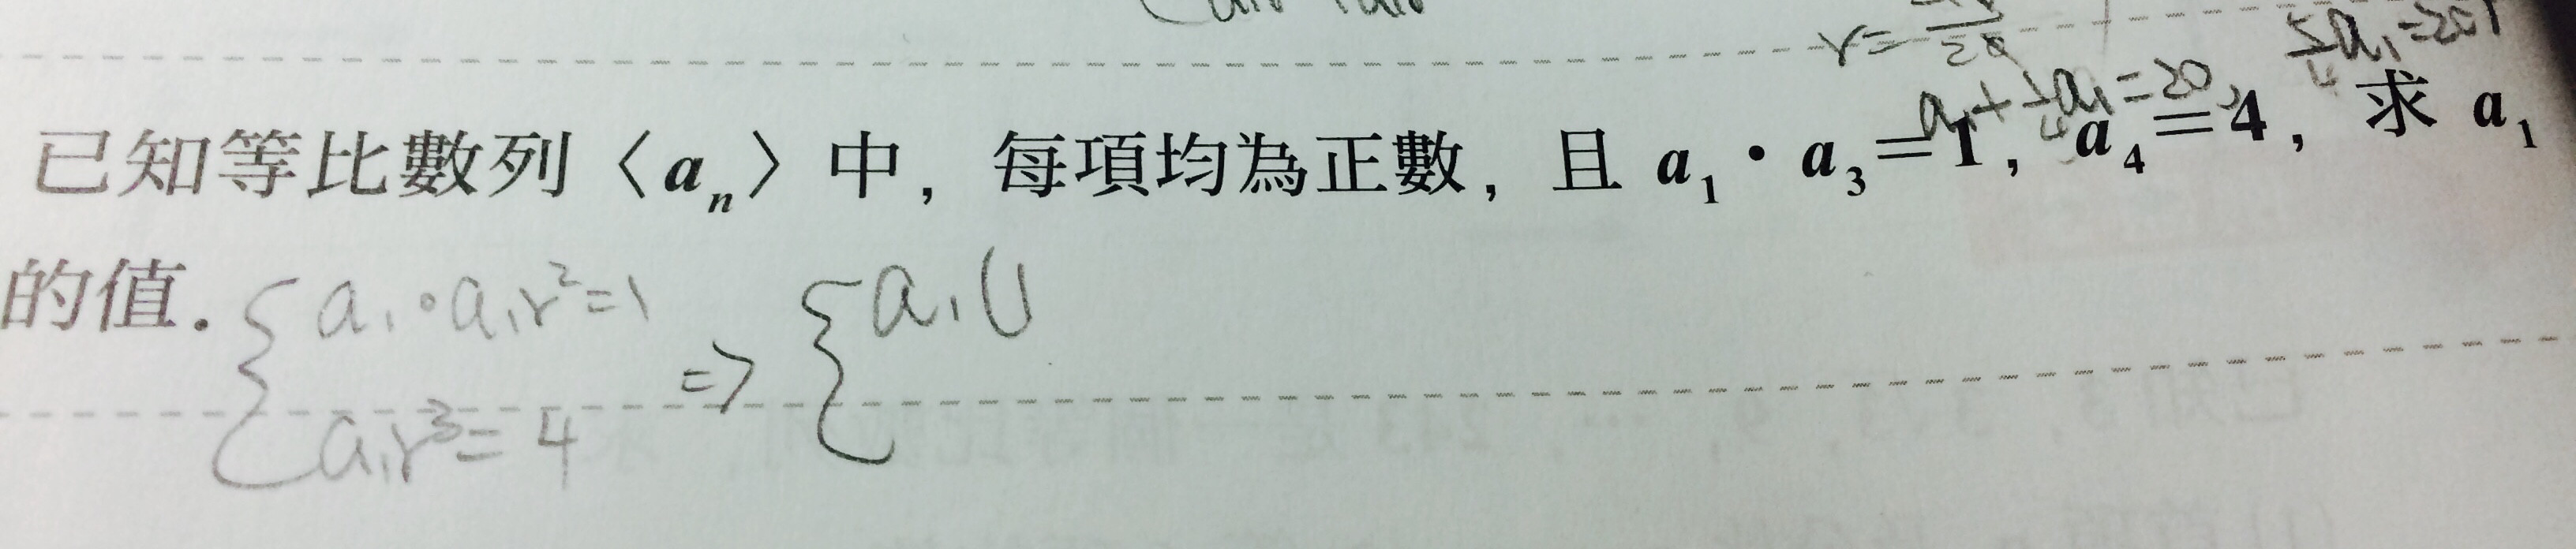 r=
5/4 a₁=20
a₁+1/4 a₁=20
已知等比數列〈aₙ〉中, 每項均為正數, 且 a₁・a₃=1, a₄=4, 求 a₁
的值.
{ a₁・a₁r²=1 ⇒ { a₁(
a₁r³=4